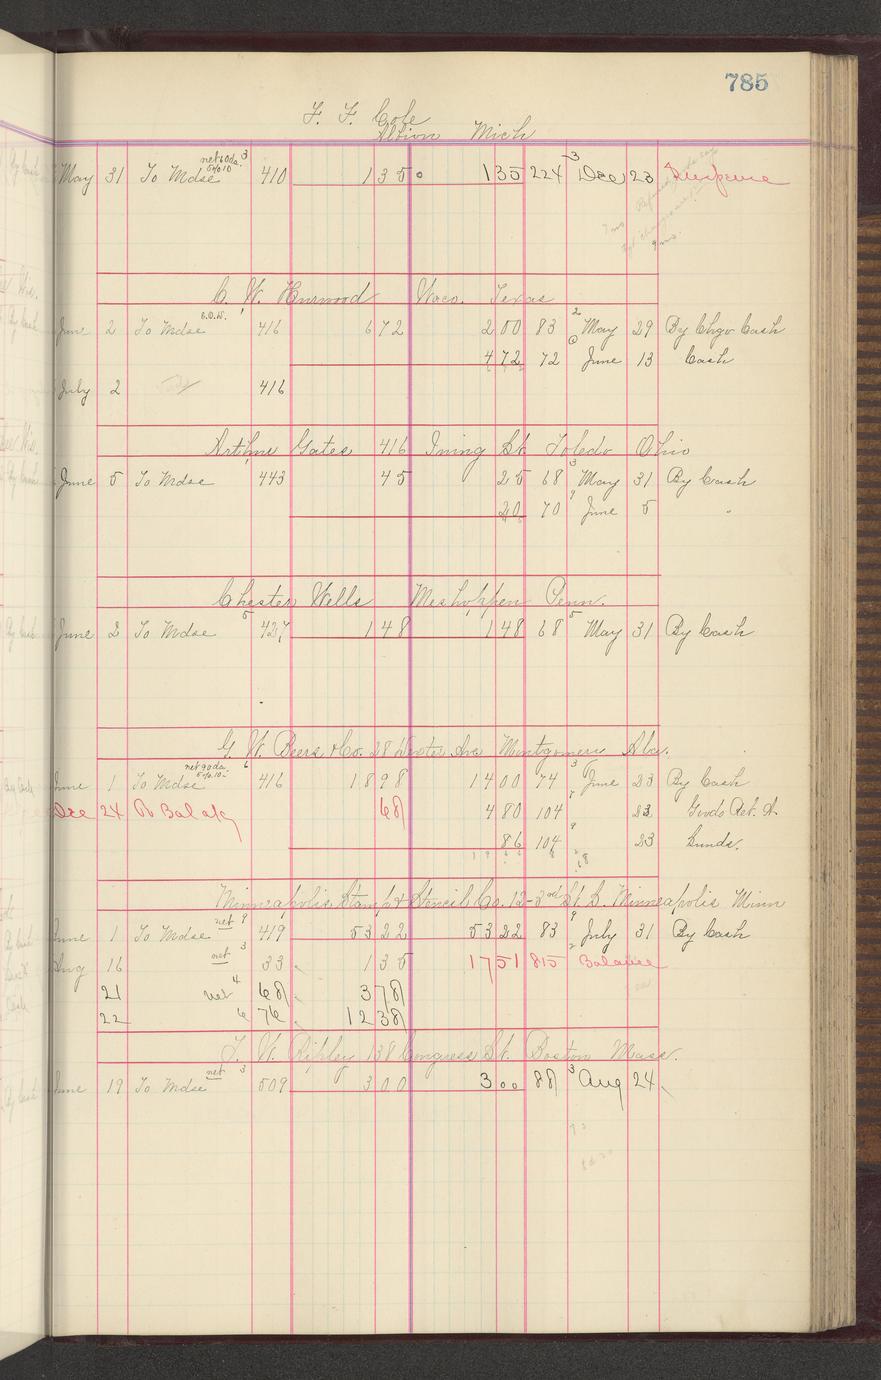 785
F. F. Cole
Albion Mich
net 60 da. 3
5%10
May 31 To Mdse 410 135 135 224 3 Dec 23 Suspense
C. W. Hurwood Waco. Texas
June 2 To Mdse C.O.D. 416 672 200 83 2 May 29 By Chgo Cash
472 72 6 June 13 Cash
July 2 416
Arthur Gates 416 Irving St. Toledo Ohio
June 5 To Mdse 443 45 25 68 3 May 31 By Cash
20 70 9 June 5 "
Chester Wells Meshoppen Penn.
June 2 To Mdse 5 427 148 148 68 5 May 31 By Cash
G. W. Beers & Co. 28 Dexter Ave Montgomery Ala.
net 90 da. 6
5%10.
June 1 To Mdse 416 1898 1400 74 3 June 23 By Cash
Dec 24 To Bal 68 480 104 7 23 Goods Ret. d.
86 104 9 23 Sunds.
Minneapolis Stamp & Stencil Co. 12-3rd St. S. Minneapolis Minn
June 1 To Mdse net 9 419 5322 5322 83 9 July 31 By Cash
Aug 16 net 3 33 135 1751 815 2 Balance
21 net 4 68 378
22 " 6 76 1238
T. W. Ripley 138 Congress St. Boston Mass.
June 19 To Mdse net 3 509 300 300 88 3 Aug 24